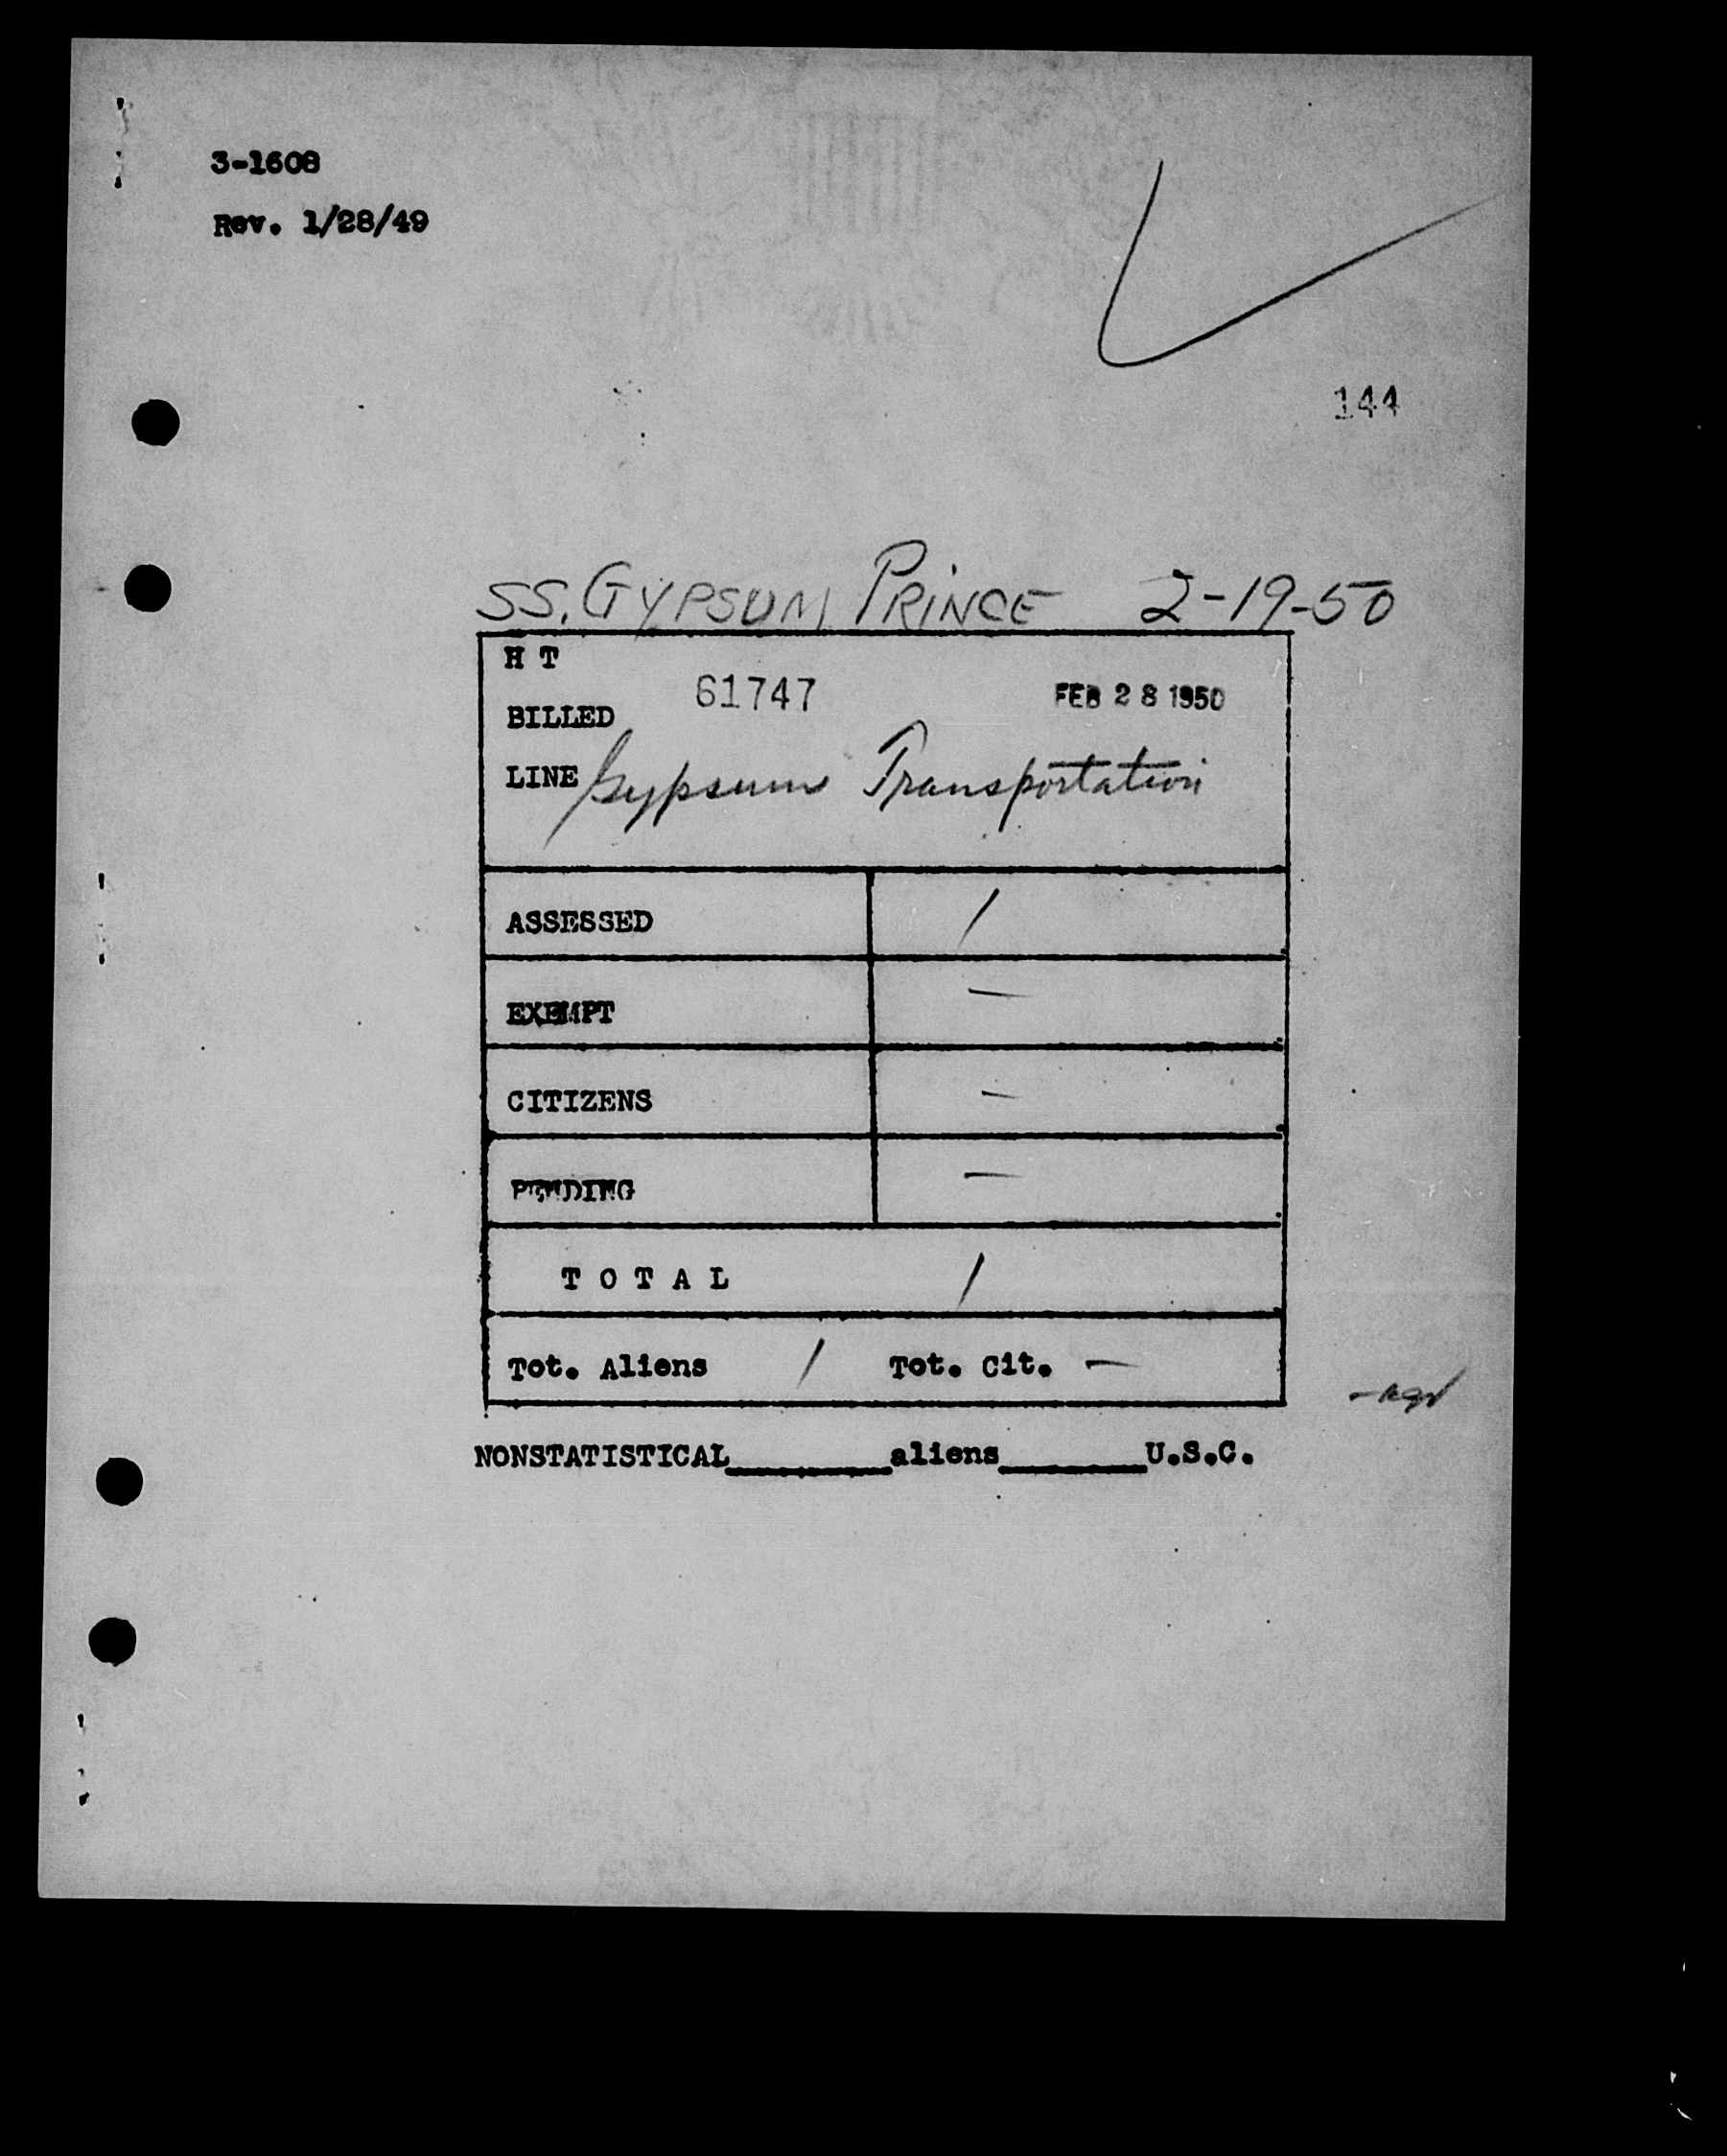 3-1608
Rev. 1/28/49
144
SS. GYPSUM PRINCE 2-19-50
H T
61747 FEB 28 1950
BILLED
LINE Gypsum Transportation
ASSESSED 1
EXEMPT —
CITIZENS —
PENDING —
T O T A L 1
Tot. Aliens 1 Tot. Cit. —
NONSTATISTICAL________aliens_______U.S.C.